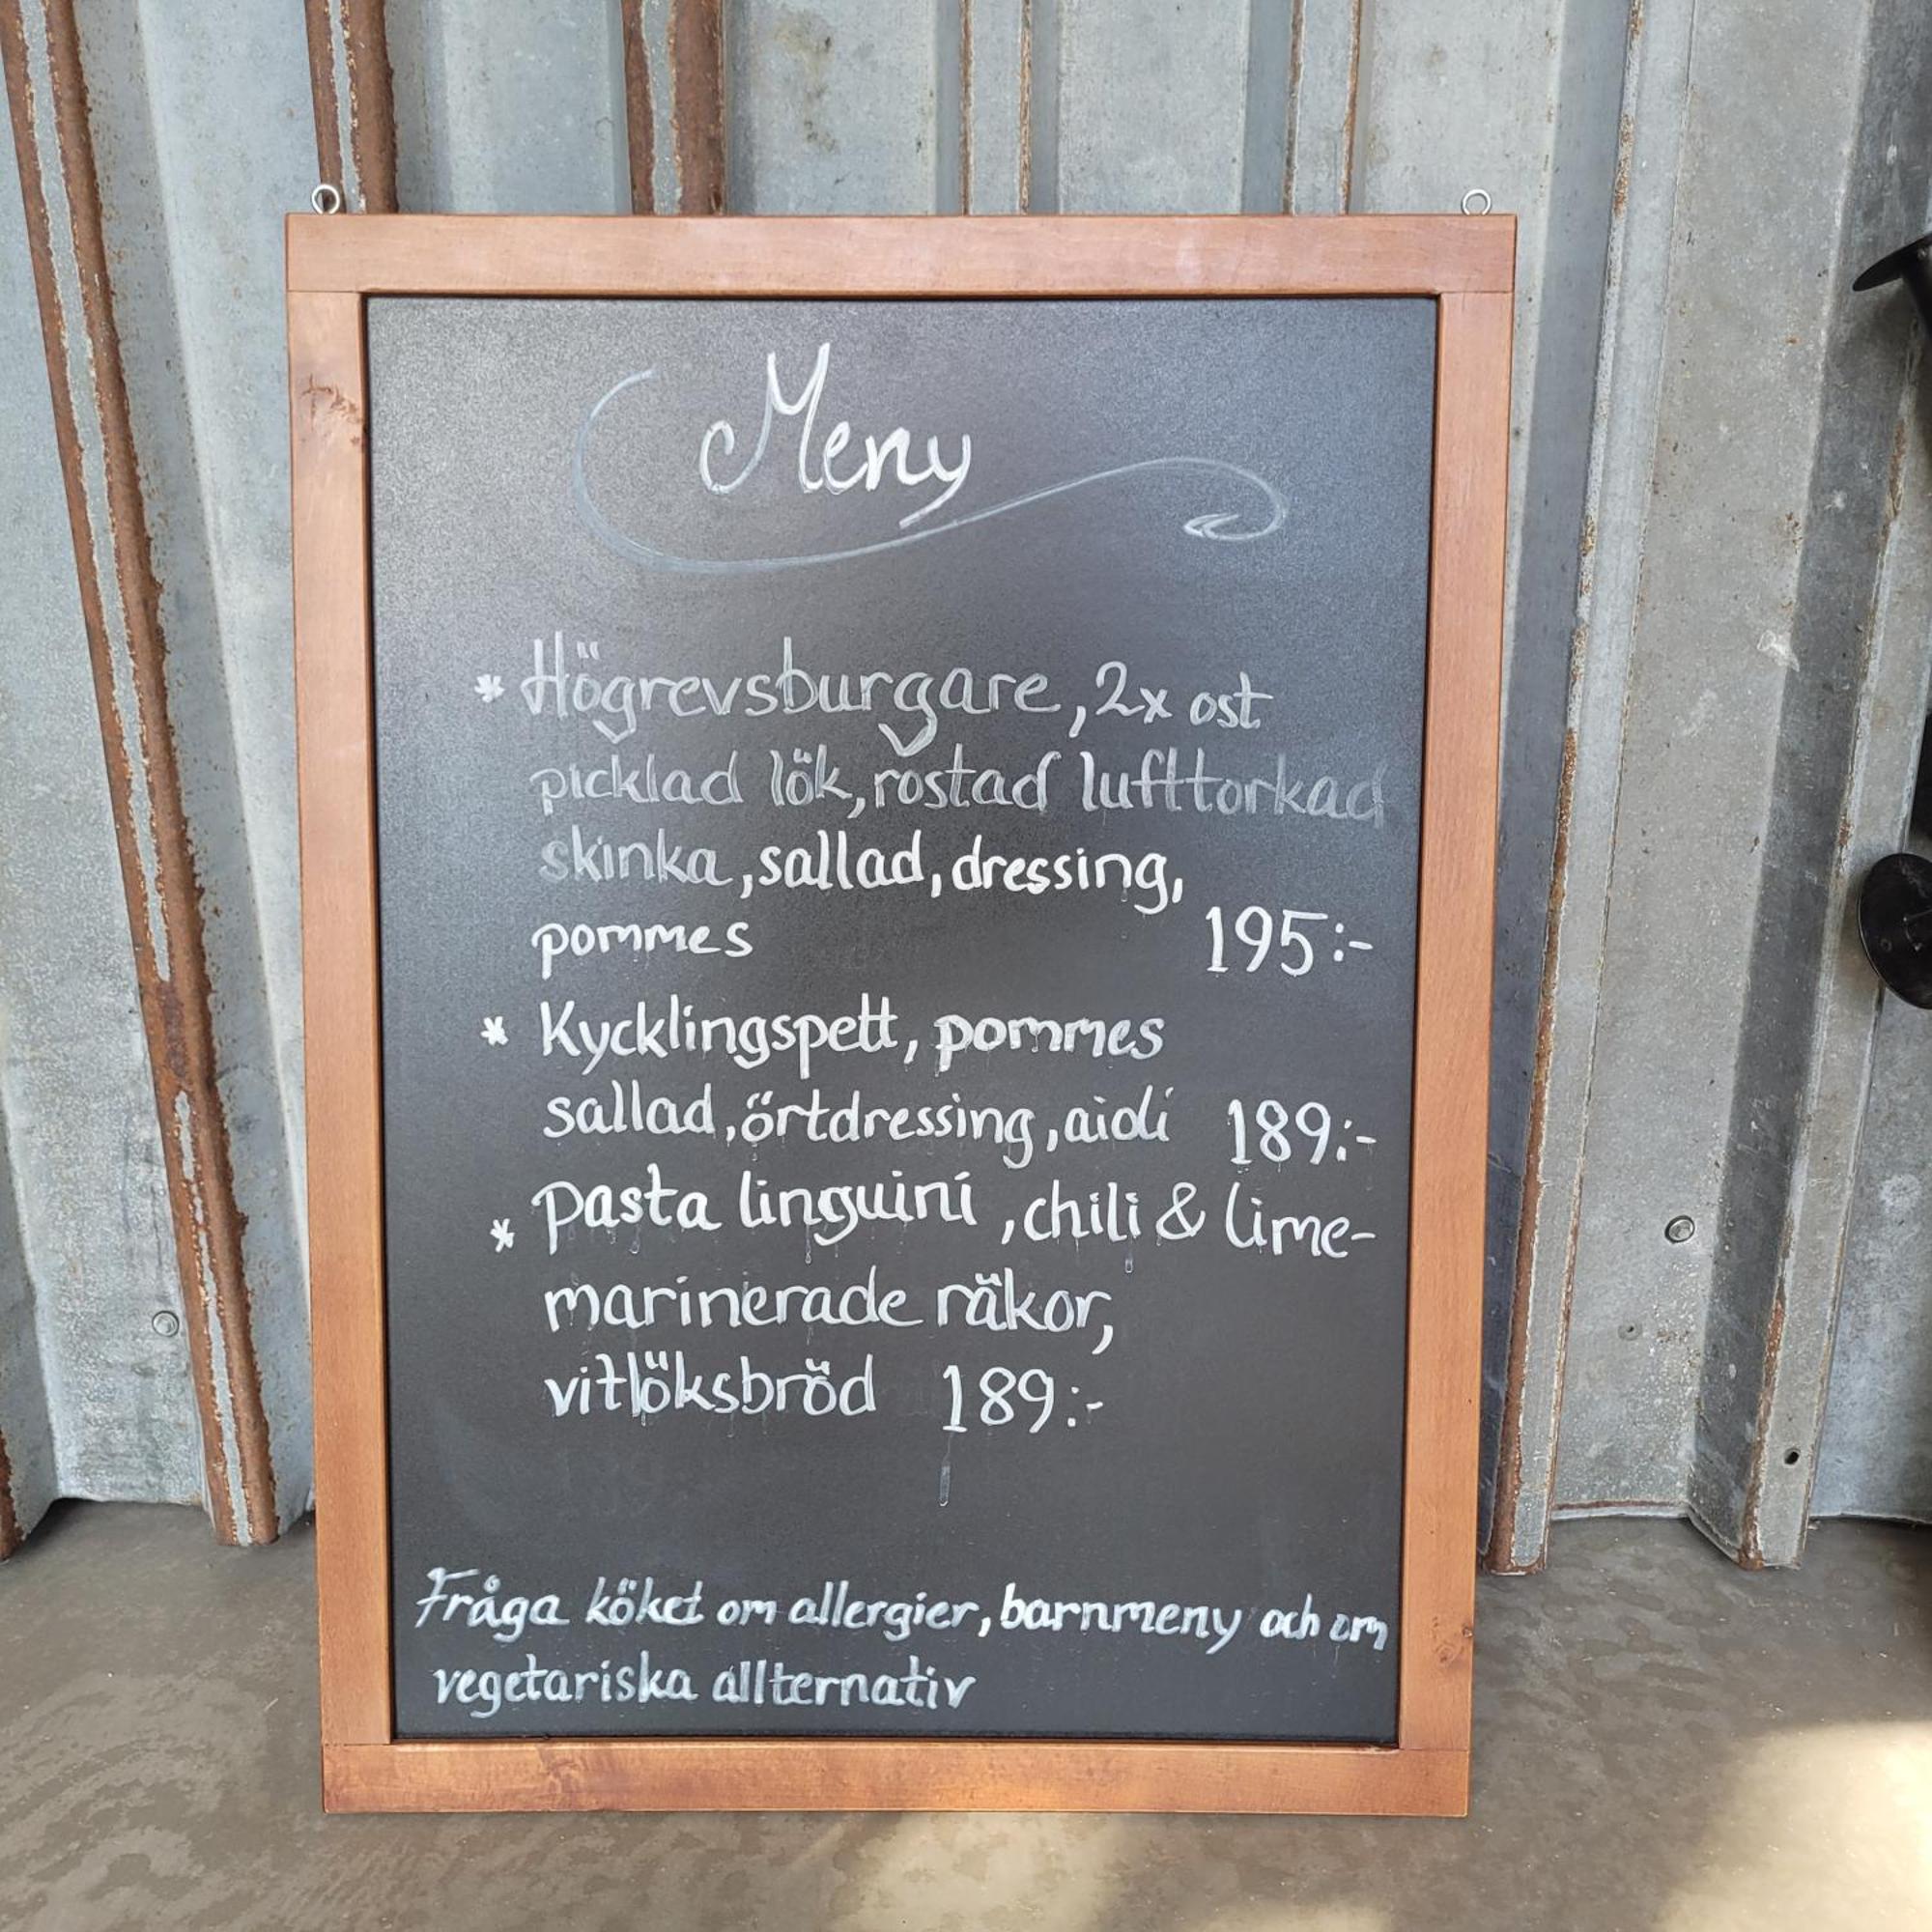 Meny
* Högrevsburgare, 2x ost
picklad lök, rostad lufttorkad
skinka, sallad, dressing,
pommes 195:-
* Kycklingspett, pommes
sallad, örtdressing, aioli 189:-
* Pasta linguini, chili & lime-
marinerade räkor,
vitlöksbröd 189:-
Fråga köket om allergier, barnmeny och om
vegetariska allternativ